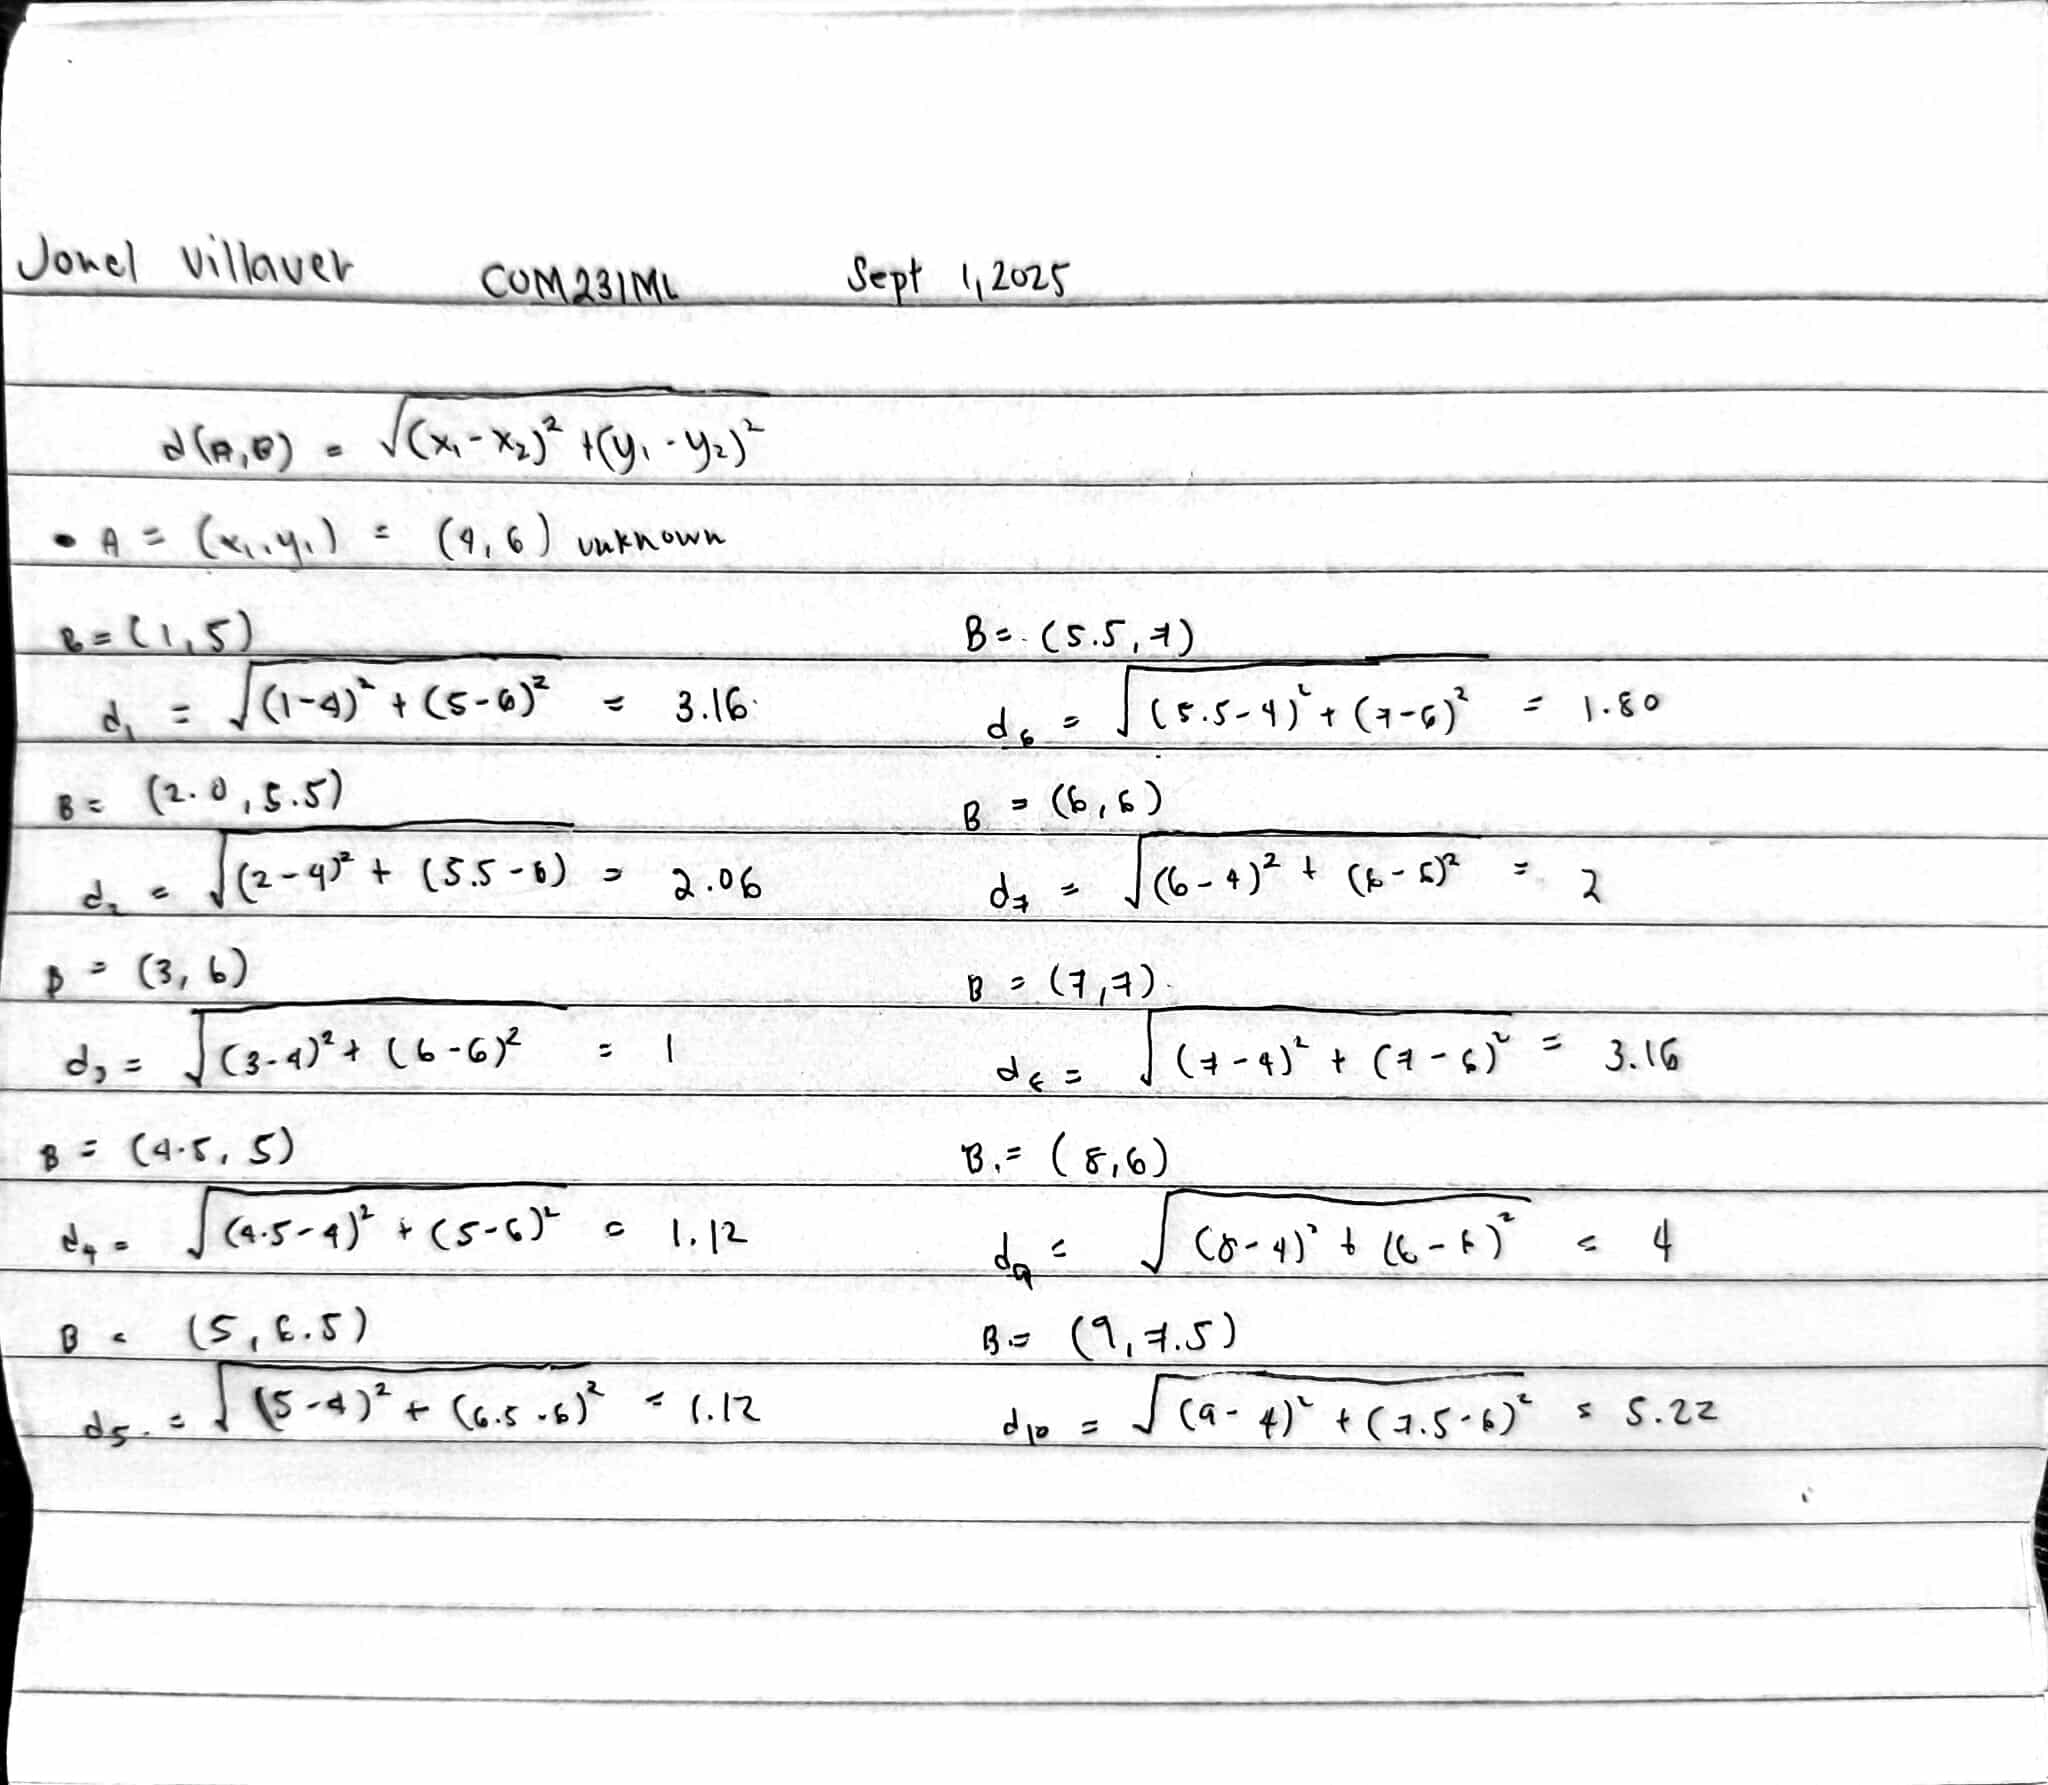 Jonel Villaver COM231ML Sept 1, 2025
d(A,B) = √(x₁-x₂)² + (y₁-y₂)²
• A = (x₁,y₁) = (4,6) unknown
B = (1,5)
d₁ = √(1-4)² + (5-6)² = 3.16
B = (2.0,5.5)
d₂ = √(2-4)² + (5.5-6) = 2.06
B = (3,6)
d₃ = √(3-4)² + (6-6)² = 1
B = (4.5,5)
d₄ = √(4.5-4)² + (5-6)² = 1.12
B = (5,6.5)
d₅ = √(5-4)² + (6.5-6)² = 1.12
B = (5.5,7)
d₆ = √(5.5-4)² + (7-6)² = 1.80
B = (6,6)
d₇ = √(6-4)² + (6-6)² = 2
B = (7,7)
d₈ = √(7-4)² + (7-6)² = 3.16
B = (8,6)
d₉ = √(8-4)² + (6-6)² = 4
B = (9,7.5)
d₁₀ = √(9-4)² + (7.5-6)² = 5.22